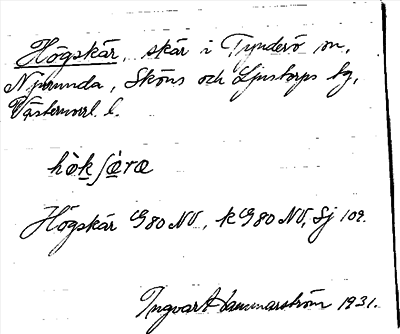 Högskär, skär i Tynderö sn,
Njurunda, Sköns och Ljustorps tg,
Västernorrl. l.
hò̀kʃæ̀ra
Högskär G80 NV, k G80 NV, Sj 109.
Ingvar Hammarström 1931.